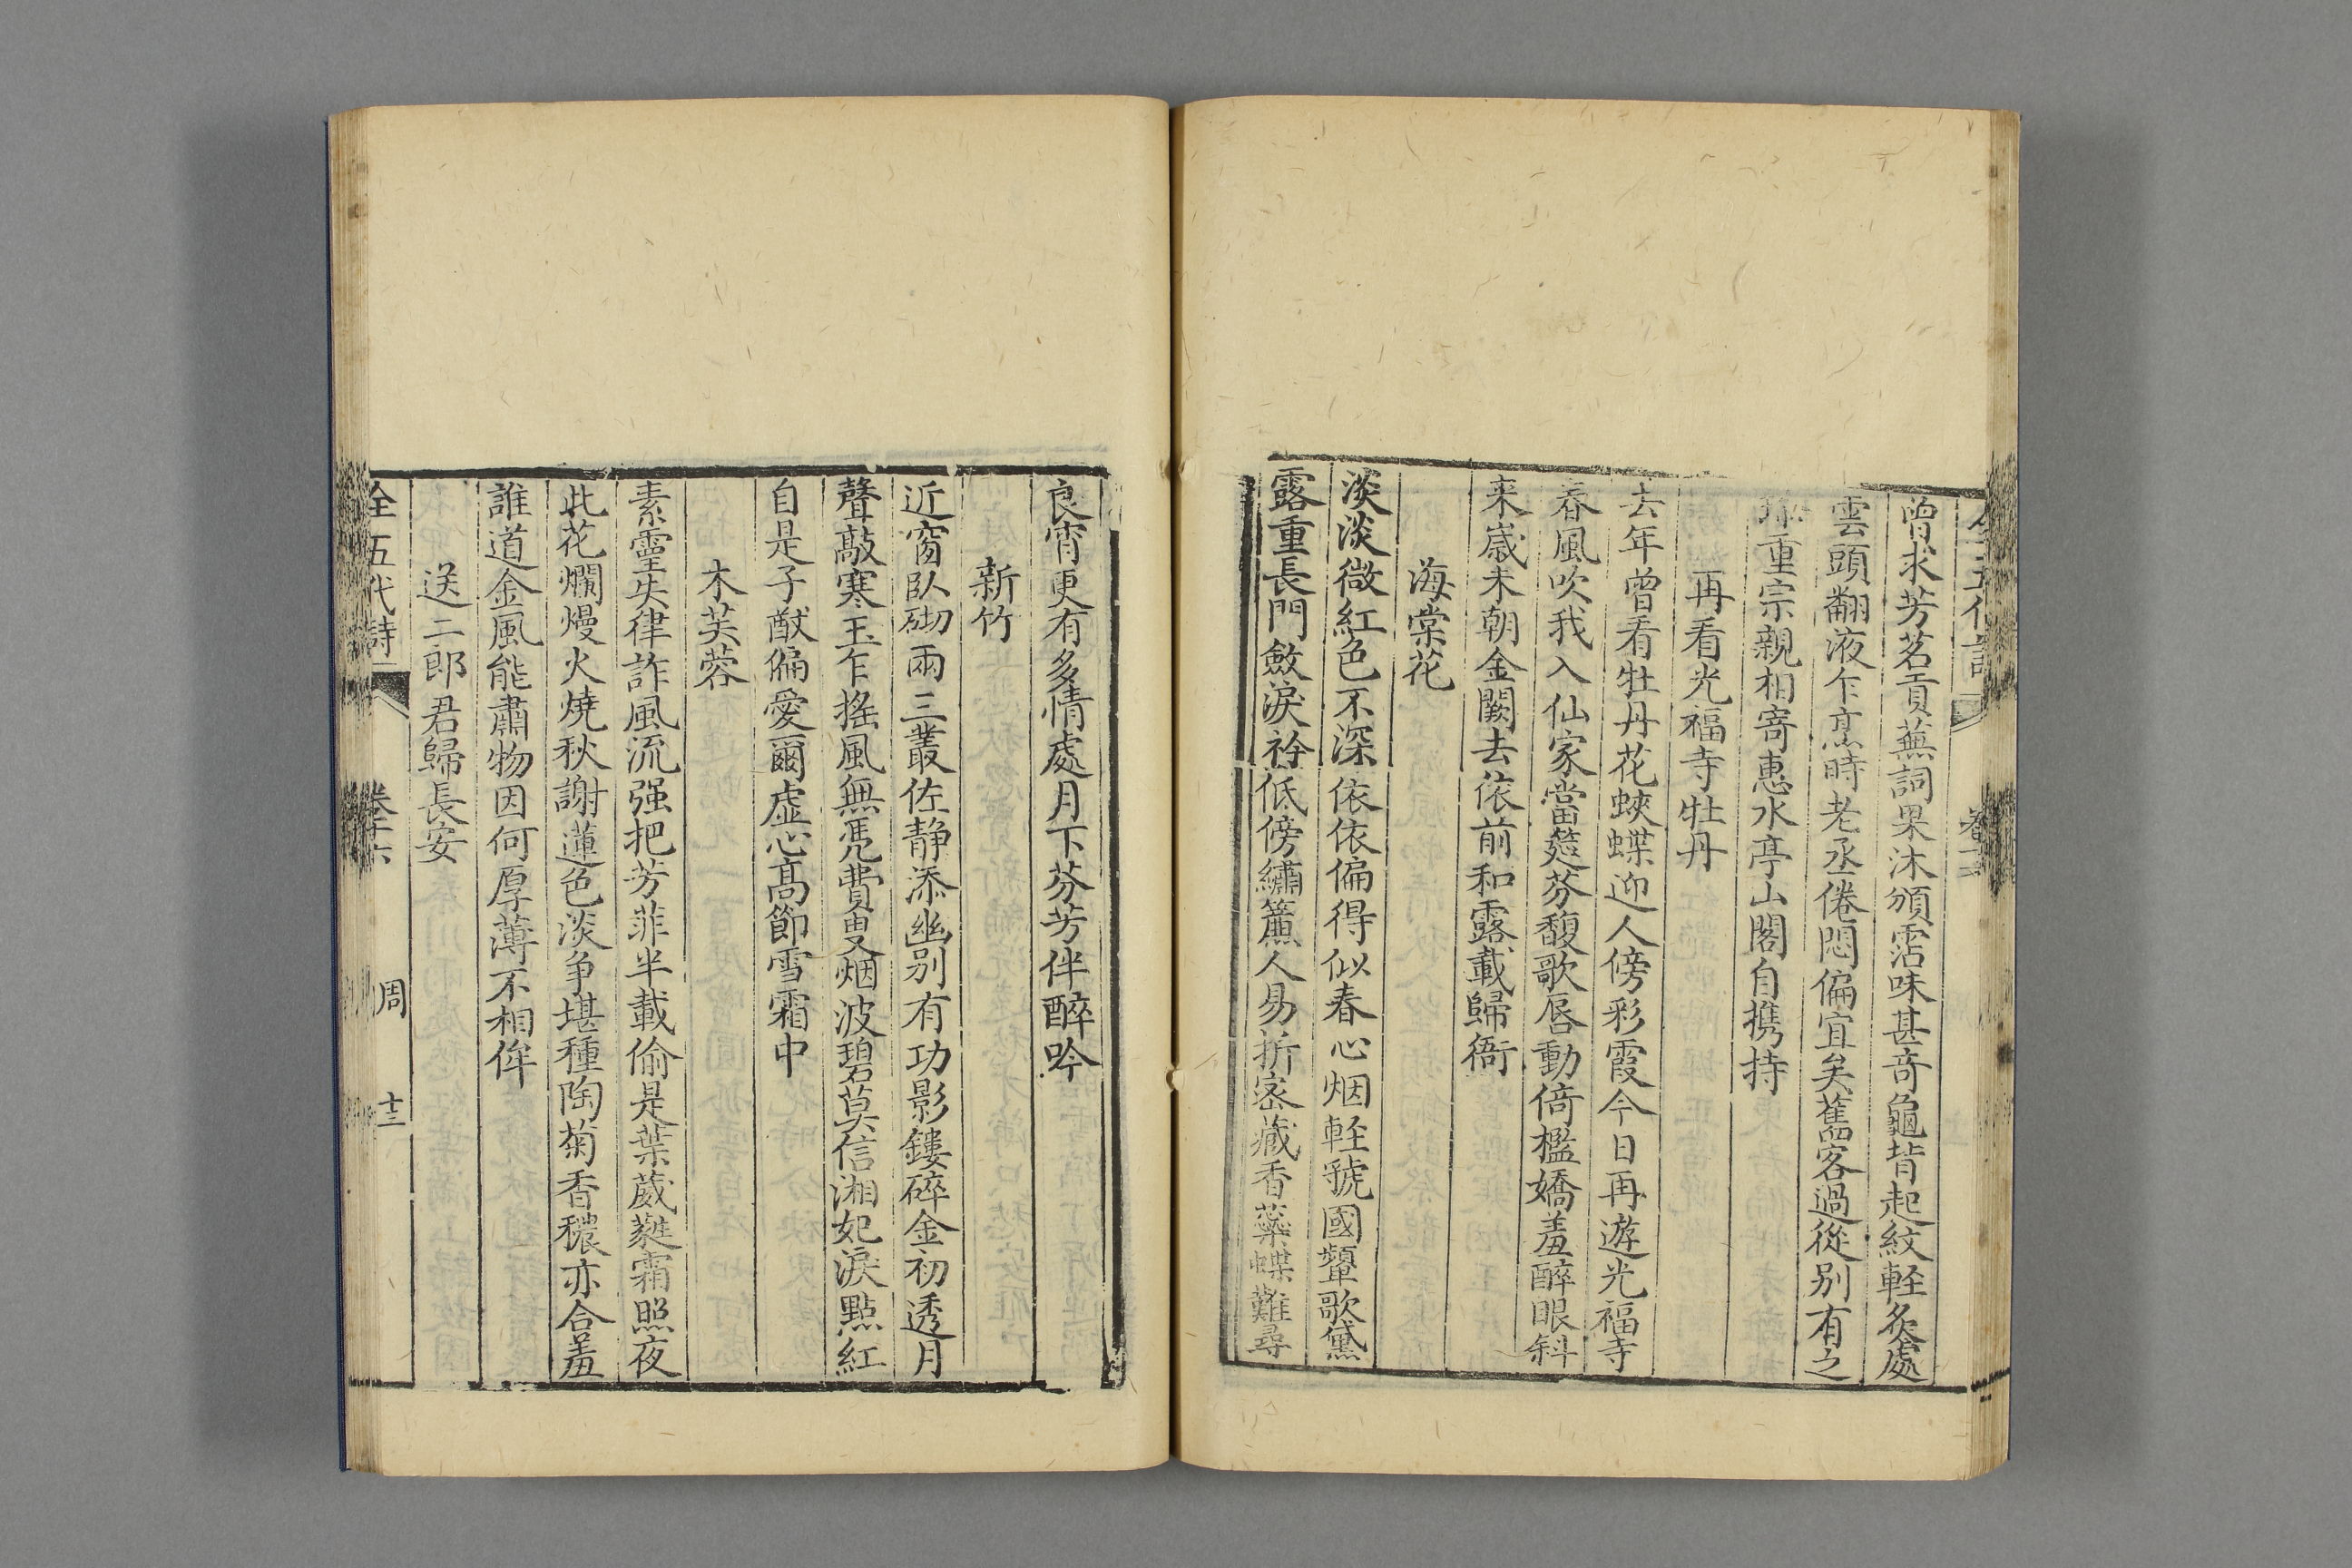 曾求芳茗貢蕪詞果沐頒霑味甚奇龜背起紋輕炙處
雲頭翻液乍烹時老丞倦悶偏宜矣舊客過從别有之
珎重宗親相寄惠水亭山閣自携持
再看光福寺牡丹
去年曾看牡丹花蛺蝶迎人傍彩霞今日再遊光福寺
春風吹我入仙家當筵芬馥歌唇動倚檻嬌羞醉眼斜
来歲未朝金闕去依前和露載歸衙
海棠花
淡淡微紅色不深依依偏得似春心烟輕虢國顰歌黛
露重長門斂淚衿低傍繡簾人易折密藏香蘂蝶難尋
良宵更有多情處月下芬芳伴醉吟
新竹
近窗臥砌兩三叢佐静添幽别有功影鏤碎金初透月
聲敲寒玉乍搖風無凭費叟烟波碧莫信湘妃淚點紅
自是子猷偏愛爾虚心高節雪霜中
木芙蓉
素靈失律詐風流强把芳菲半載偷是葉葳蕤霜照夜
此花爛熳火燒秋謝蓮色淡争堪種陶菊香穠亦合羞
誰道金風能肅物因何厚薄不相侔
送二郎君歸長安
全五代詩 卷十六 周 十三